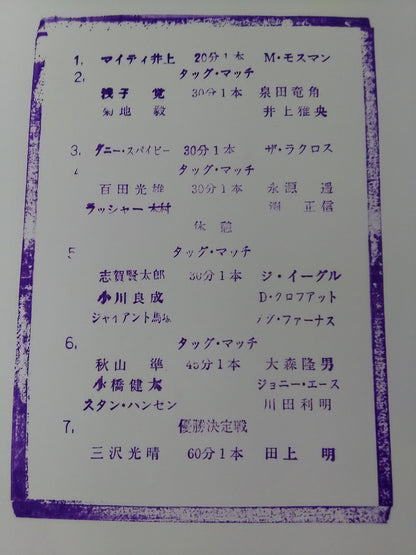 1. マイティ井上 20分1本 M・モスマン
2. タッグ・マッチ
浅子 覚 30分1本 泉田竜角
菊地 毅 井上雅央
3. ダニー・スパイビー 30分1本 ザ・ラクロス
4 タッグ・マッチ
百田光雄 30分1本 永源 遥
ラッシャー木村 渕 正信
休憩
5 タッグ・マッチ
志賀賢太郎 30分1本 ジ・イーグル
小川良成 D・クロフアット
ジャイアント馬場 ファーナス
6. タッグ・マッチ
秋山 準 45分1本 大森隆男
小橋健太 ジョニー・エース
スタン・ハンセン 川田利明
7. 優勝決定戦
三沢光晴 60分1本 田上 明